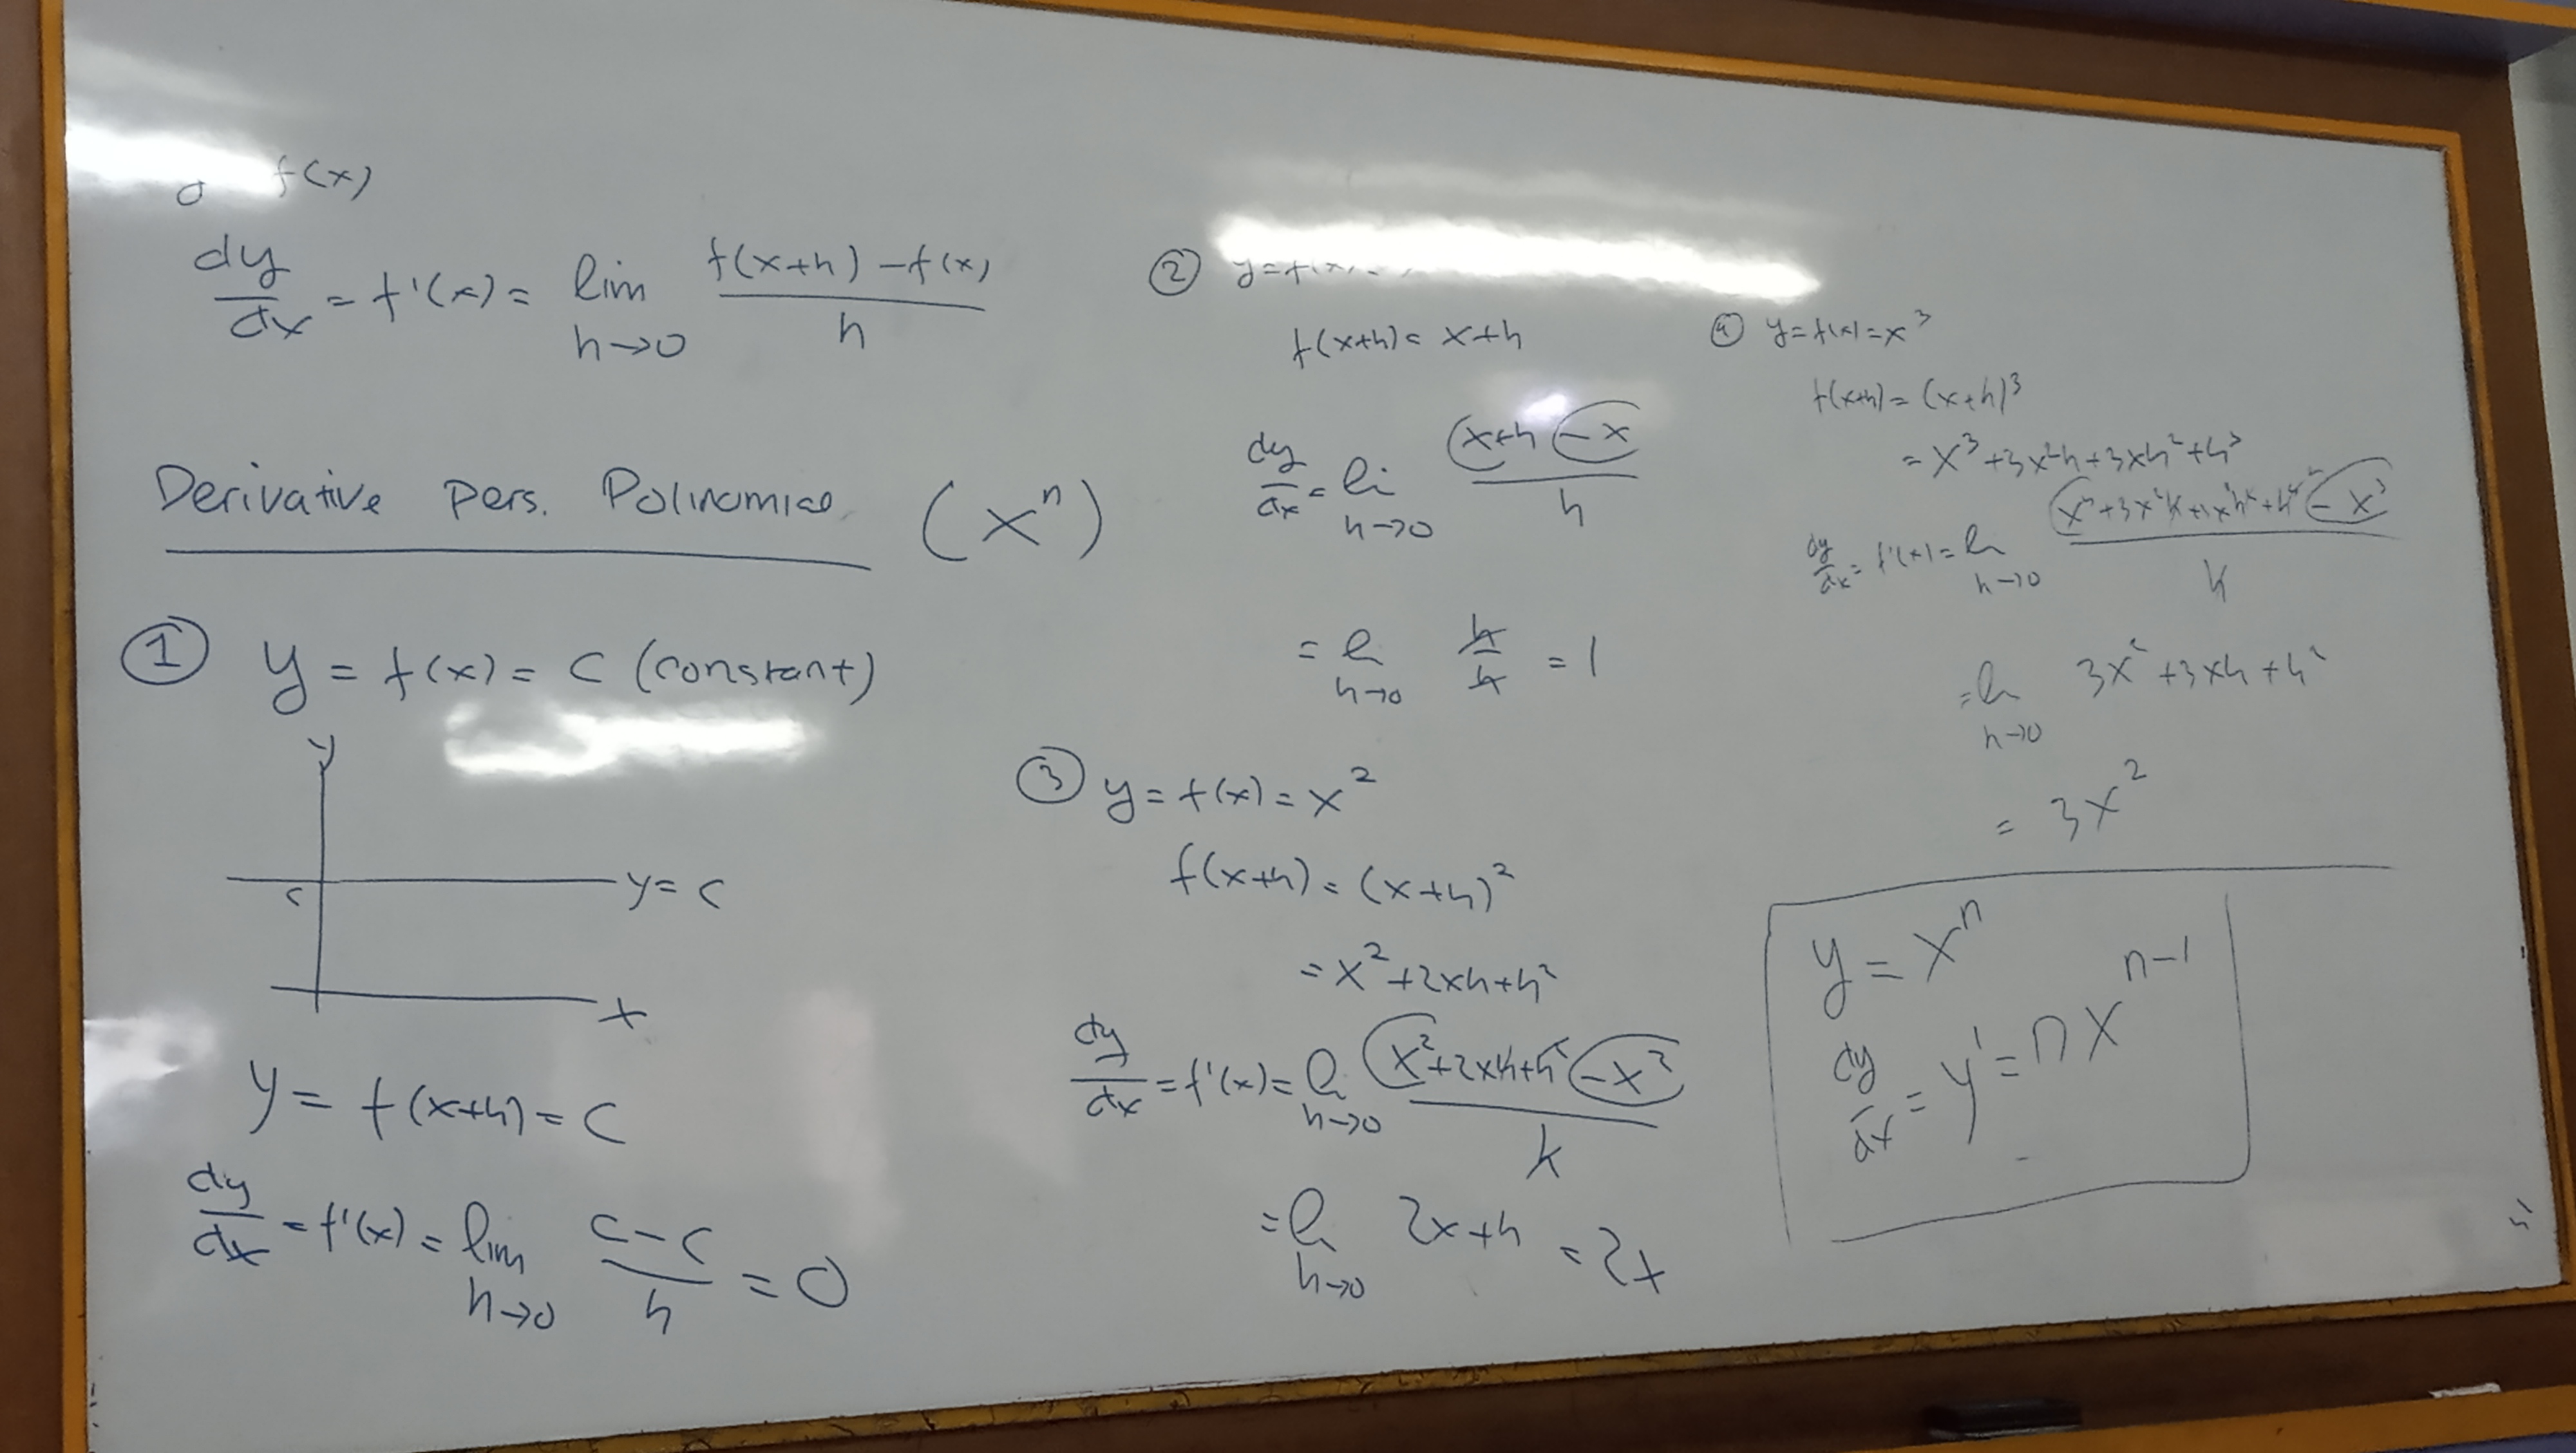 f(x)
dy/dx = f'(x) = lim h→0 (f(x+h) - f(x))/h
Derivative Pers. Polinomial (x^n)
① y = f(x) = c (constant)
y
c
y = c
x
y = f(x+h) = c
dy/dx = f'(x) = lim h→0 (c - c)/h = 0
② y = f(x) =
f(x+h) = x+h
dy/dx = li h→0 (x+h - x)/h
= l h→0 h/h = 1
③ y = f(x) = x^2
f(x+h) = (x+h)^2
= x^2 + 2xh + h^2
dy/dx = f'(x) = l h→0 (x^2 + 2xh + h^2 - x^2)/h
= l h→0 2x + h = 2x
④ y = f(x) = x^3
f(x+h) = (x+h)^3
= x^3 + 3x^2h + 3xh^2 + h^3
dy/dx = f'(x) = l h→0 (x^3 + 3x^2h + 3xh^2 + h^3 - x^3)/h
= l h→0 3x^2 + 3xh + h^2
= 3x^2
y = x^n
dy/dx = y' = nx^(n-1)